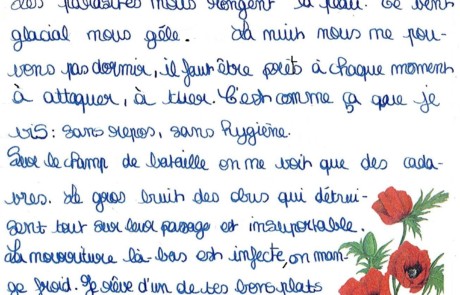 des parasites nous rongent la peau. Ce vent
glacial nous gêle. La nuit nous ne pou-
vons pas dormir, il faut être prêts à chaque moment
à attaquer, à tuer. C'est comme ça que je
vis : sans repos, sans hygiène.
Sur le champ de bataille on ne voit que des cada-
vres. Le gros bruit des obus qui détrui-
sent tout sur leur passage est insuportable.
La nourriture là-bas est infecte, on man-
ge froid. Je rêve d'un de tes bons plats